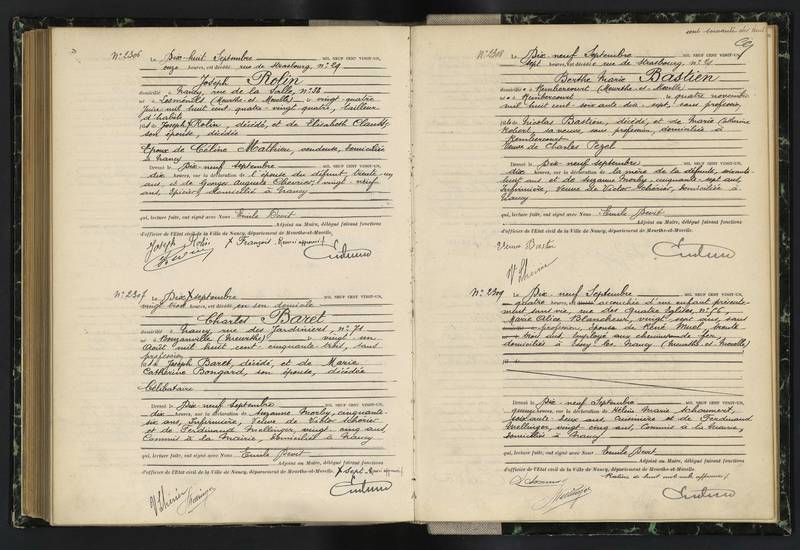 N° 2306
Le Dix-huit Septembre MIL NEUF CENT VINGT-UN,
onze heures, est décédé rue de Strasbourg, n° 29
Joseph Rolin
domicilié à Nancy, rue de la Salle, n° 38
né à Rosmontd (Meurthe-et-Moselle) le vingt quatre
Juin mil huit cent quatre-vingt quatre, tailleur
d'habits
fils de Joseph Rolin, décédé, et de Elisabeth
son épouse, décédée
Epoux de Céline Mathieu, vendeuse, domiciliée
à Nancy
Dressé le Dix-neuf septembre MIL NEUF CENT VINGT-UN,
dix heures, sur la déclaration de l'épouse du défunt, trente un
ans, et de George Auguste Chevrier, vingt neuf
ans, Epicier, domicilié à Nancy
qui, lecture faite, ont signé avec Nous Emile Devit
Adjoint au Maire, délégué faisant fonctions
d'officier de l'Etat civil de la Ville de Nancy, département de Meurthe-et-Moselle.
Joseph Rolin X François
N° 2307
Le Dix septembre MIL NEUF CENT VINGT-UN,
vingt trois heures, est décédé en son domicile
Charles Baret
domicilié à Nancy rue des Jardiniers, n° 71
né à Bouzanville (Meurthe) le vingt un
Août mil huit cent cinquante trois, sans
profession
fils de Joseph Baret, décédé, et de Marie
Catherine Bongard, son épouse, décédée
Célibataire
Dressé le Dix-neuf septembre MIL NEUF CENT VINGT-UN,
dix heures, sur la déclaration de Suzanne Morley, cinquante
six ans, Infirmière, Veuve de Victor Schérier
et de Ferdinand Mellinger, vingt cinq ans,
Commis à la Mairie, domicilié à Nancy
qui, lecture faite, ont signé avec Nous Emile Devit
Adjoint au Maire, délégué faisant fonctions
d'officier de l'Etat civil de la Ville de Nancy, département de Meurthe-et-Moselle. X sept
N° 2308
Le Dix-neuf Septembre MIL NEUF CENT VINGT-UN,
sept heures, est décédée rue de Strasbourg, n° 21
Berthe Marie Bastien
domiciliée à Rembercourt (Meurthe-et-Moselle)
née à Rembercourt le quatre novembre
mil huit cent soixante dix sept, sans profession,
fille de Nicolas Bastien, décédé, et de Marie Catherine
Robert, sa veuve, sans profession, domiciliée à
Rembercourt
Veuve de Charles Pezel
Dressé le Dix-neuf septembre MIL NEUF CENT VINGT-UN,
dix heures, sur la déclaration de la mère de la défunte, soixante
huit ans et de Suzanne Morley, cinquante sept ans,
Infirmière, Veuve de Victor Schérier, domiciliée à
Nancy
qui, lecture faite, ont signé avec Nous Emile Devit
Adjoint au Maire, délégué faisant fonctions
d'officier de l'Etat civil de la Ville de Nancy, département de Meurthe-et-Moselle.
Veuve Bastien
N° 2309
Le Dix-neuf Septembre MIL NEUF CENT VINGT-UN,
quatre heures, est accouchée d'un enfant présenté
ment sans vie, rue des Quatre Eglises, n° 76,
Marie Alice Blancheur, vingt sept ans, sans
profession, épouse de René Muel, trente
trois ans, Employé aux chemins de fer,
domiciliés à Essey les Nancy (Meurthe-et-Moselle)
Dressé le Dix-neuf Septembre MIL NEUF CENT VINGT-UN,
quinze heures, sur la déclaration de Hélène Marie Schoumert,
soixante deux ans, cuisinière et de Ferdinand
Mellinger, vingt cinq ans, Commis à la Mairie,
domiciliés à Nancy
qui, lecture faite, ont signé avec Nous Emile Devit
Adjoint au Maire, délégué faisant fonctions
d'officier de l'Etat civil de la Ville de Nancy, département de Meurthe-et-Moselle.